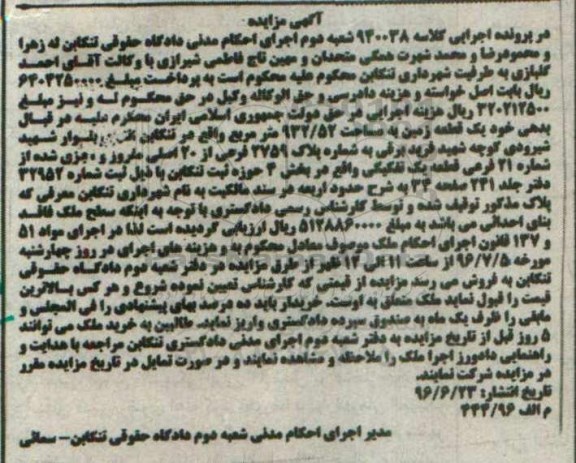 آگهی مزایده
در پرونده اجرایی کلاسه ۹۴۰۰۳۸ شعبه دوم اجرای احکام مدنی دادگاه حقوقی تنکابن له زهرا
و محمودرضا و محمد شهرت همگی متحدان و مهین تاج فاطمی شیرازی با وکالت آقای احمد
گلبازی به طرفیت شهرداری تنکابن محکوم علیه محکوم است به پرداخت مبلغ ۶۴۰۳۲۵۰۰۰۰
ریال بابت اصل خواسته و هزینه دادرسی و حق الوکاله وکیل در حق محکوم له و نیز مبلغ
۳۲۰۲۱۲۵۰۰ ریال هزینه اجرایی در حق دولت جمهوری اسلامی ایران محکوم علیه در قبال
بدهی خود یک قطعه زمین به مساحت ۹۳۲/۵۲ متر مربع واقع در تنکابن بلوار شهید
شیرودی کوچه شهید فرید برقی به شماره پلاک ۲۷۵۹ فرعی از ۲۰ اصلی مفروز و مجزی شده از
شماره ۲۱ فرعی قطعه یک تفکیکی واقع در بخش ۳ حوزه ثبت تنکابن با ذیل ثبت شماره ۳۲۹۵۲
دفتر جلد ۲۳۱ صفحه ۳۴ به شرح حدود اربعه در سند مالکیت به نام شهرداری تنکابن معرفی که
پلاک مذکور توقیف شده و توسط کارشناس رسمی دادگستری با توجه به اینکه سطح ملک فاقد
بنای احداثی می باشد به مبلغ ۵۱۲۸۸۶۰۰۰۰ ریال ارزیابی گردیده است لذا در اجرای مواد ۵۱
و ۱۳۷ قانون اجرای احکام ملک موصوف معادل محکوم به و هزینه های اجرای در روز چهارشنبه
مورخه ۹۶/۷/۵ از ساعت ۱۱ الی ۱۲ ظهر از طرق مزایده در دفتر شعبه دوم دادگاه حقوقی
تنکابن به فروش می رسد مزایده از قیمتی که کارشناس تعیین نموده شروع و هر کس بالاترین
قیمت را قبول نماید ملک متعلق به اوست. خریدار باید ده درصد بهای پیشنهادی را فی المجلس و
مابقی را ظرف یک ماه به صندوق سپرده دادگستری واریز نماید. طالبین به خرید ملک می توانند
۵ روز قبل از تاریخ مزایده به دفتر شعبه دوم اجرای مدنی دادگستری تنکابن مراجعه با هدایت و
راهنمایی دادورز اجرا ملک را ملاحظه و مشاهده نمایند و در صورت تمایل در تاریخ مزایده مقرر
در مزایده شرکت نمایند.
تاریخ انتشار: ۹۶/۶/۲۳
م الف ۴۴۴/۹۶
مدیر اجرای احکام مدنی شعبه دوم دادگاه حقوقی تنکابن- سمائی